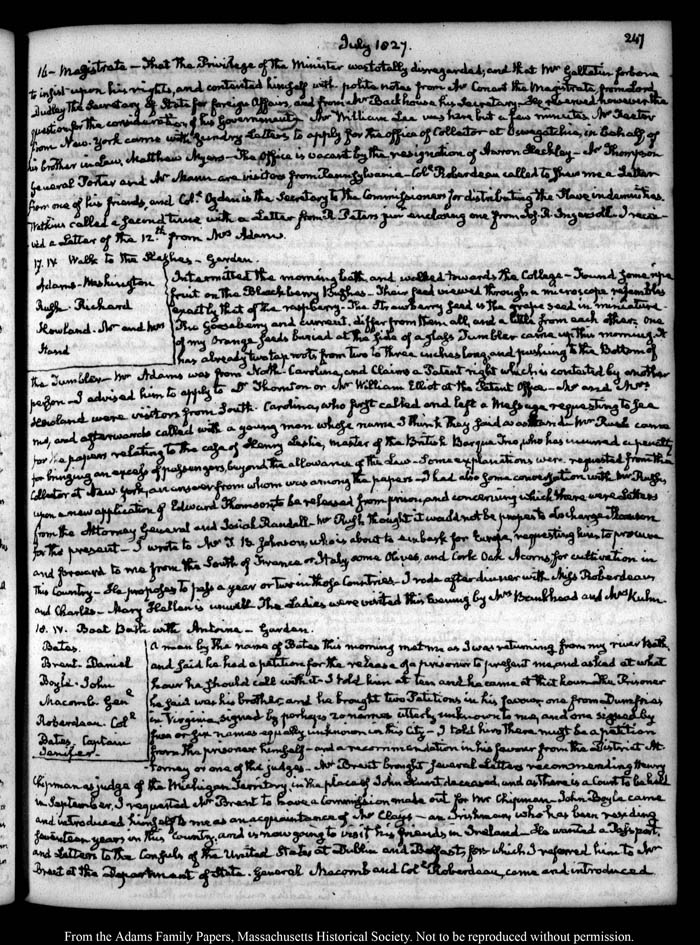 July 1827.
247
16 - Magistrate - That the Privilege of the Minister was totally disregarded, and that Mr Gallatin forbore
to insist upon his rights, and contented himself with polite notes from Mr Conant the Magistrate, from Lord
Dudley the Secretary of State for foreign Affairs, and from Mr Backhouse his Secretary - He reserved however the
question for the consideration of his Government. Mr William Lee was here but a few minutes. Mr
from New-York came with sundry Letters to apply for the office of Collector at Oswegatchie, in behalf of
his brother in Law, Matthew Myers - The Office is vacant by the resignation of Aaron Hackley - Mr Thompson
General Porter and Mr Mann are visitors from Pennsylvania - Colł Roberdeau called to shew me a Letter
from one of his friends, and Colł Ogden is the Secretary to the Commissioners for distributing the Slave indemnities.
Watkins called a second time with a Letter from R. Peters junr enclosing one from J. R. Ingersoll. I recei-
ved a Letter of the 12th from Mrs Adams.
17. IV. Walk to the - Garden.
Adams - Washington
Rush. Richard
Howland. Mr and Mrs
Hand
Intermitted the morning bath, and walked towards the College - Found some ripe
fruit on the Blackberry bushes - Their seed viewed through a microscope resembles
exactly that of the raspberry - The Strawberry seed is the grape seed in miniature
The Gooseberry and currant, differ from them all, and a little from each other; one
of my Orange seeds buried at the side of a glass Tumbler came up this morning. It
has already two tap roots from two to three inches long, and pushing to the Bottom of
the Tumbler - Mr Adams was from North-Carolina, and Claims a Patent right which is contested by another
person - I advised him to apply to Dr Thornton or Mr William Elliot at the Patent Office - Mr and Mrs
Howland were visitors from South-Carolina, who first called and left a Message requesting to see
me, and afterwards called with a young man whose name I think they said was Hand - Mr Rush came
for the papers relating to the case of Henry Leslie, master of the British Barque Ino, who has incurred a penalty
for bringing an excess of passengers, beyond the allowance of the Law - Some explanations were requested from the
Collector at New York, an answer from whom was among the papers - I had also some conversation with Mr Rush,
upon a new application of Edward Thomson, to be released from prison, and concerning which there were Letters
from the Attorney General and Josiah Randall. Mr Rush thought it would not be proper to discharge Thomson
for the present - I wrote to Mr T. B. Johnson, who is about to embark for Europe, requesting him to procure
and forward to me from the South of France or Italy some Olives, and Cork Oak Acorns for cultivation in
this Country - He proposes to pass a year or two in those Countries - I rode after dinner with Miss Roberdeau,
and Charles - Mary Hellen is unwell. The Ladies were visited this Evening by Mrs Bankhead and Mrs Kuhn.
18. IV. Boat Bath with Antoine - Garden.
Bates.
Brent. Daniel
Boyle. John
Macomb Genł
Roberdeau. Colł
Bates. Captain
Jenifer.
A man by the name of Bates this morning met me as I was returning from my river Bath,
and said he had a petition for the release of a prisoner to present me, and asked at what
hour he should call with it - I told him at ten and he came at that hour. The Prisoner
he said was his brother, and he brought two Petitions in his favour, one from Dumfries
in Virginia, signed by perhaps 20 names utterly unknown to me, and one signed by
five or six names equally unknown in this City - I told him there must be a petition
from the prisoner himself - and a recommendation in his favour from the District At-
torney or one of the judges - Mr Brent brought several Letters recommending Henry
Chipman as judge of the Michigan Territory, in the place of John Hunt deceased, and as there is a Court to be held
in September, I requested Mr Brent to have a Commission made out for Mr Chipman - John Boyle came
and introduced himself to me as an acquaintance of Mr Clay's - an Irishman, who has been residing
seventeen years in this Country, and is now going to visit his friends in Ireland - He wanted a Passport,
and Letters to the Consuls of the United States at Dublin and Belfast, for which I referred him to Mr
Brent at the Department of State. General Macomb and Colł Roberdeau, came and introduced
From the Adams Family Papers, Massachusetts Historical Society. Not to be reproduced without permission.